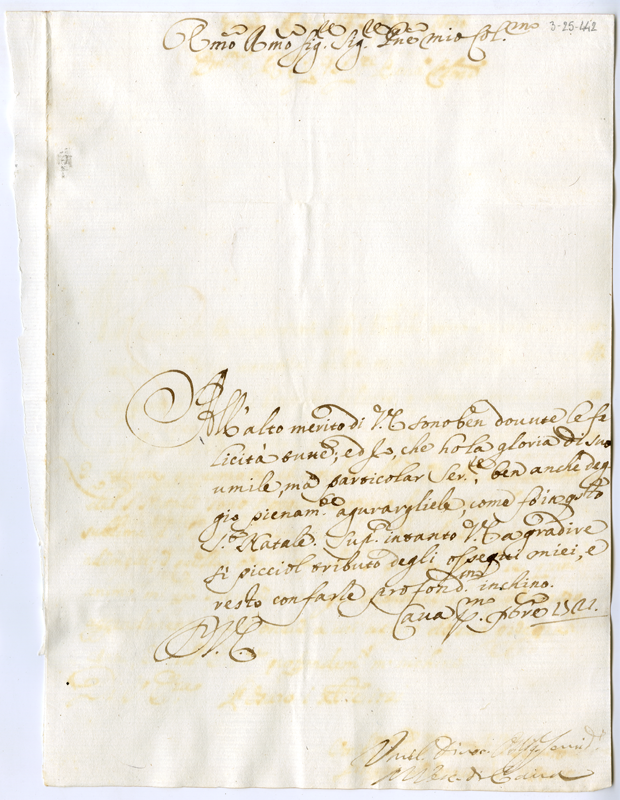 3-25-442
Rmo Rmo Sig. Sig. Pne mio Col.mo
All'alto merito di V.E. sono ben dovute le fe
licità tutte; ed Io, che ho la gloria di suo
umile, ma particolar Ser.re ben anche deg
gio pienam.te agurargliele, come fò in q.sto
S.to Natale. Sup.co intanto V.E. a gradire
sì picciol tributo degli ossequi miei, e
resto con farle profond.mo inchino.
Cava
V.E.
Umil. Divo. Obbl.
di Cava